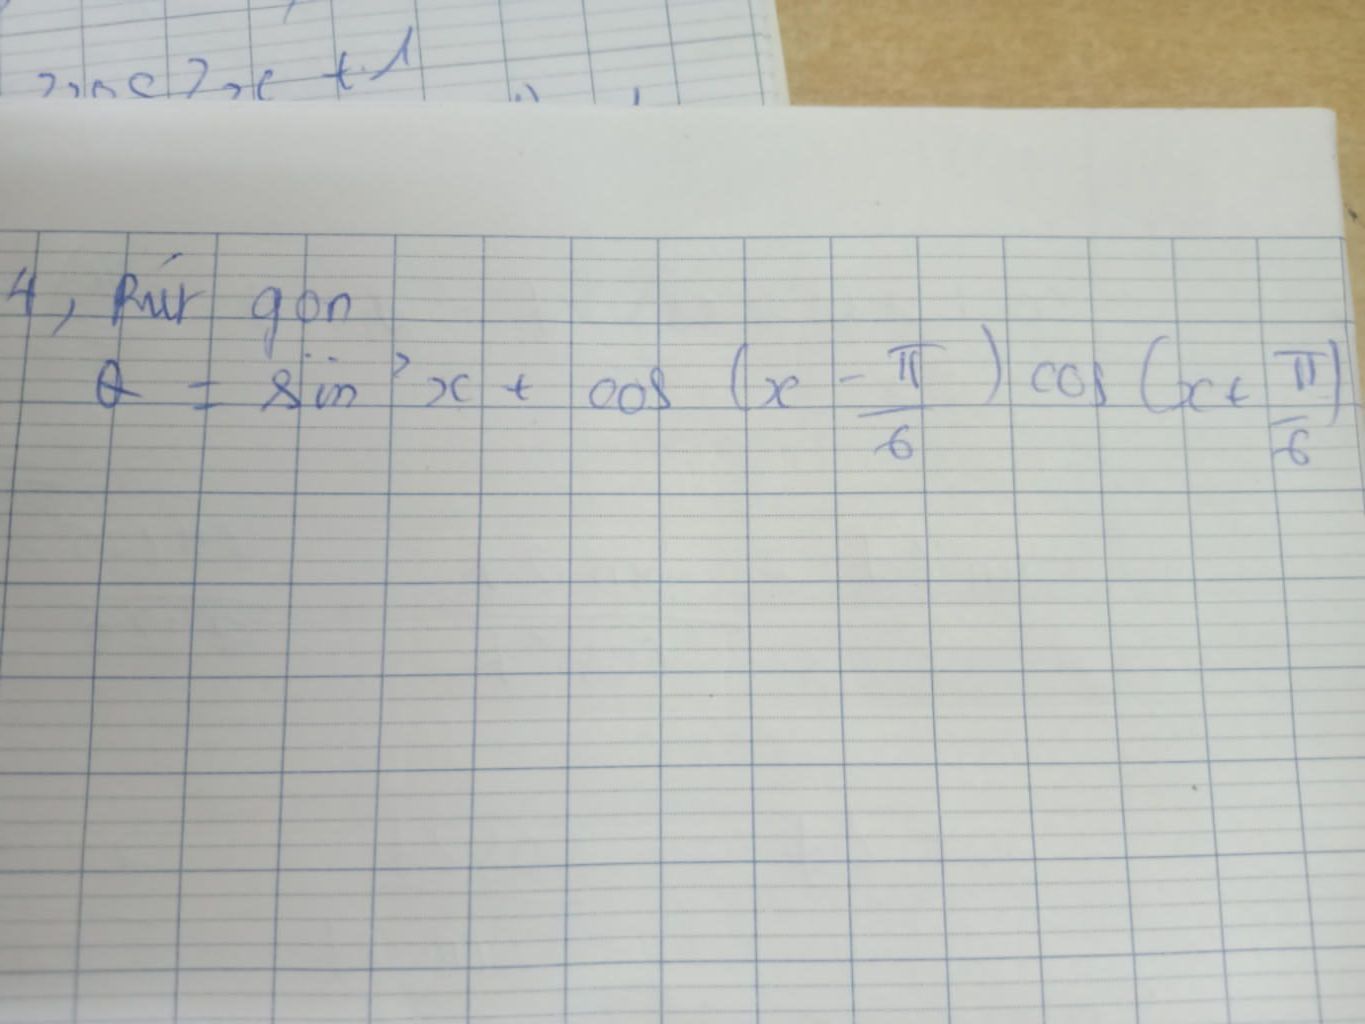 + 1
4, Rút gọn
Q = sin² x + cos (x - π/6) cos (x + π/6)